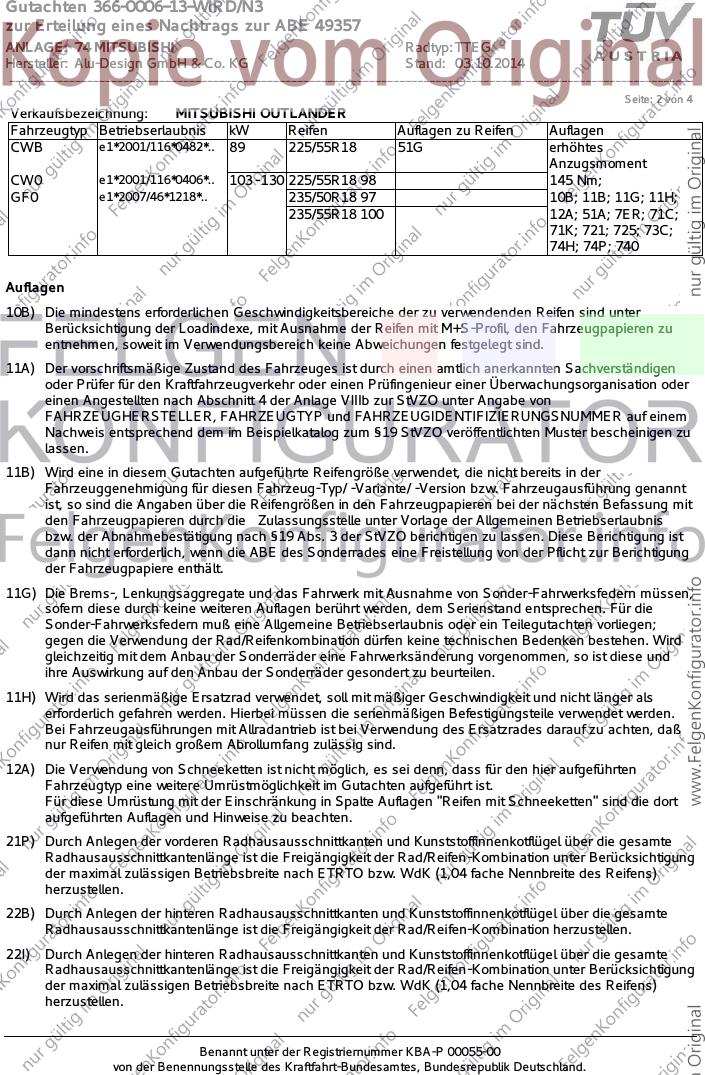 Gutachten 366-0006-13-WIRD/N3
zur Erteilung eines Nachtrags zur ABE 49357
ANLAGE: 74 MITSUBISHI
Radtyp: TTEG
Hersteller: Alu-Design GmbH & Co. KG
Stand: 03.10.2014
TÜV
AUSTRIA
Kopie vom Original
Seite: 2 von 4
Verkaufsbezeichnung: MITSUBISHI OUTLANDER
Fahrzeugtyp Betriebserlaubnis kW Reifen Auflagen zu Reifen Auflagen
CWB e1*2001/116*0482*.. 89 225/55R18 51G erhöhtes
Anzugsmoment
CW0 e1*2001/116*0406*.. 103-130 225/55R18 98 145 Nm;
GF0 e1*2007/46*1218*.. 235/50R18 97 10B; 11B; 11G; 11H;
235/55R18 100 12A; 51A; 7ER; 71C;
71K; 721; 725; 73C;
74H; 74P; 740
Auflagen
10B) Die mindestens erforderlichen Geschwindigkeitsbereiche der zu verwendenden Reifen sind unter
Berücksichtigung der Loadindexe, mit Ausnahme der Reifen mit M+S-Profil, den Fahrzeugpapieren zu
entnehmen, soweit im Verwendungsbereich keine Abweichungen festgelegt sind.
11A) Der vorschriftsmäßige Zustand des Fahrzeuges ist durch einen amtlich anerkannten Sachverständigen
oder Prüfer für den Kraftfahrzeugverkehr oder einen Prüfingenieur einer Überwachungsorganisation oder
einen Angestellten nach Abschnitt 4 der Anlage VIIIb zur StVZO unter Angabe von
FAHRZEUGHERSTELLER, FAHRZEUGTYP und FAHRZEUGIDENTIFIZIERUNGSNUMMER auf einem
Nachweis entsprechend dem im Beispielkatalog zum §19 StVZO veröffentlichten Muster bescheinigen zu
lassen.
11B) Wird eine in diesem Gutachten aufgeführte Reifengröße verwendet, die nicht bereits in der
Fahrzeuggenehmigung für diesen Fahrzeug-Typ/ -Variante/ -Version bzw. Fahrzeugausführung genannt
ist, so sind die Angaben über die Reifengrößen in den Fahrzeugpapieren bei der nächsten Befassung mit
den Fahrzeugpapieren durch die Zulassungsstelle unter Vorlage der Allgemeinen Betriebserlaubnis
bzw. der Abnahmebestätigung nach §19 Abs. 3 der StVZO berichtigen zu lassen. Diese Berichtigung ist
dann nicht erforderlich, wenn die ABE des Sonderrades eine Freistellung von der Pflicht zur Berichtigung
der Fahrzeugpapiere enthält.
11G) Die Brems-, Lenkungsaggregate und das Fahrwerk mit Ausnahme von Sonder-Fahrwerksfedern müssen,
sofern diese durch keine weiteren Auflagen berührt werden, dem Serienstand entsprechen. Für die
Sonder-Fahrwerksfedern muß eine Allgemeine Betriebserlaubnis oder ein Teilegutachten vorliegen;
gegen die Verwendung der Rad/Reifenkombination dürfen keine technischen Bedenken bestehen. Wird
gleichzeitig mit dem Anbau der Sonderräder eine Fahrwerksänderung vorgenommen, so ist diese und
ihre Auswirkung auf den Anbau der Sonderräder gesondert zu beurteilen.
11H) Wird das serienmäßige Ersatzrad verwendet, soll mit mäßiger Geschwindigkeit und nicht länger als
erforderlich gefahren werden. Hierbei müssen die serienmäßigen Befestigungsteile verwendet werden.
Bei Fahrzeugausführungen mit Allradantrieb ist bei Verwendung des Ersatzrades darauf zu achten, daß
nur Reifen mit gleich großem Abrollumfang zulässig sind.
12A) Die Verwendung von Schneeketten ist nicht möglich, es sei denn, dass für den hier aufgeführten
Fahrzeugtyp eine weitere Umrüstmöglichkeit im Gutachten aufgeführt ist.
Für diese Umrüstung mit der Einschränkung in Spalte Auflagen "Reifen mit Schneeketten" sind die dort
aufgeführten Auflagen und Hinweise zu beachten.
21P) Durch Anlegen der vorderen Radhausausschnittkanten und Kunststoffinnenkotflügel über die gesamte
Radhausausschnittkantenlänge ist die Freigängigkeit der Rad/Reifen-Kombination unter Berücksichtigung
der maximal zulässigen Betriebsbreite nach ETRTO bzw. WdK (1,04 fache Nennbreite des Reifens)
herzustellen.
22B) Durch Anlegen der hinteren Radhausausschnittkanten und Kunststoffinnenkotflügel über die gesamte
Radhausausschnittkantenlänge ist die Freigängigkeit der Rad/Reifen-Kombination herzustellen.
22I) Durch Anlegen der hinteren Radhausausschnittkanten und Kunststoffinnenkotflügel über die gesamte
Radhausausschnittkantenlänge ist die Freigängigkeit der Rad/Reifen-Kombination unter Berücksichtigung
der maximal zulässigen Betriebsbreite nach ETRTO bzw. WdK (1,04 fache Nennbreite des Reifens)
herzustellen.
FELGEN
KONFIGURATOR
FelgenKonfigurator.info
nur gültig im Original
www.FelgenKonfigurator.info
Benannt unter der Registriernummer KBA-P 00055-00
von der Benennungsstelle des Kraftfahrt-Bundesamtes, Bundesrepublik Deutschland.